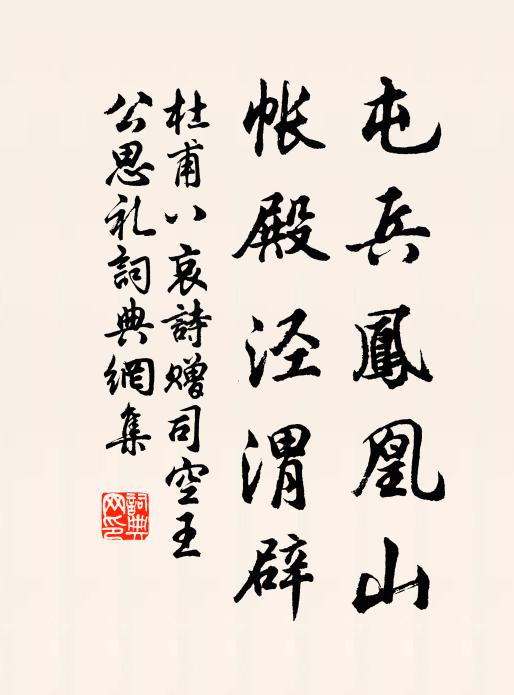 屯兵鳳凰山
帳殿涇渭辟
杜甫八哀詩贈司空王
公思礼詞典網集
詞典网印